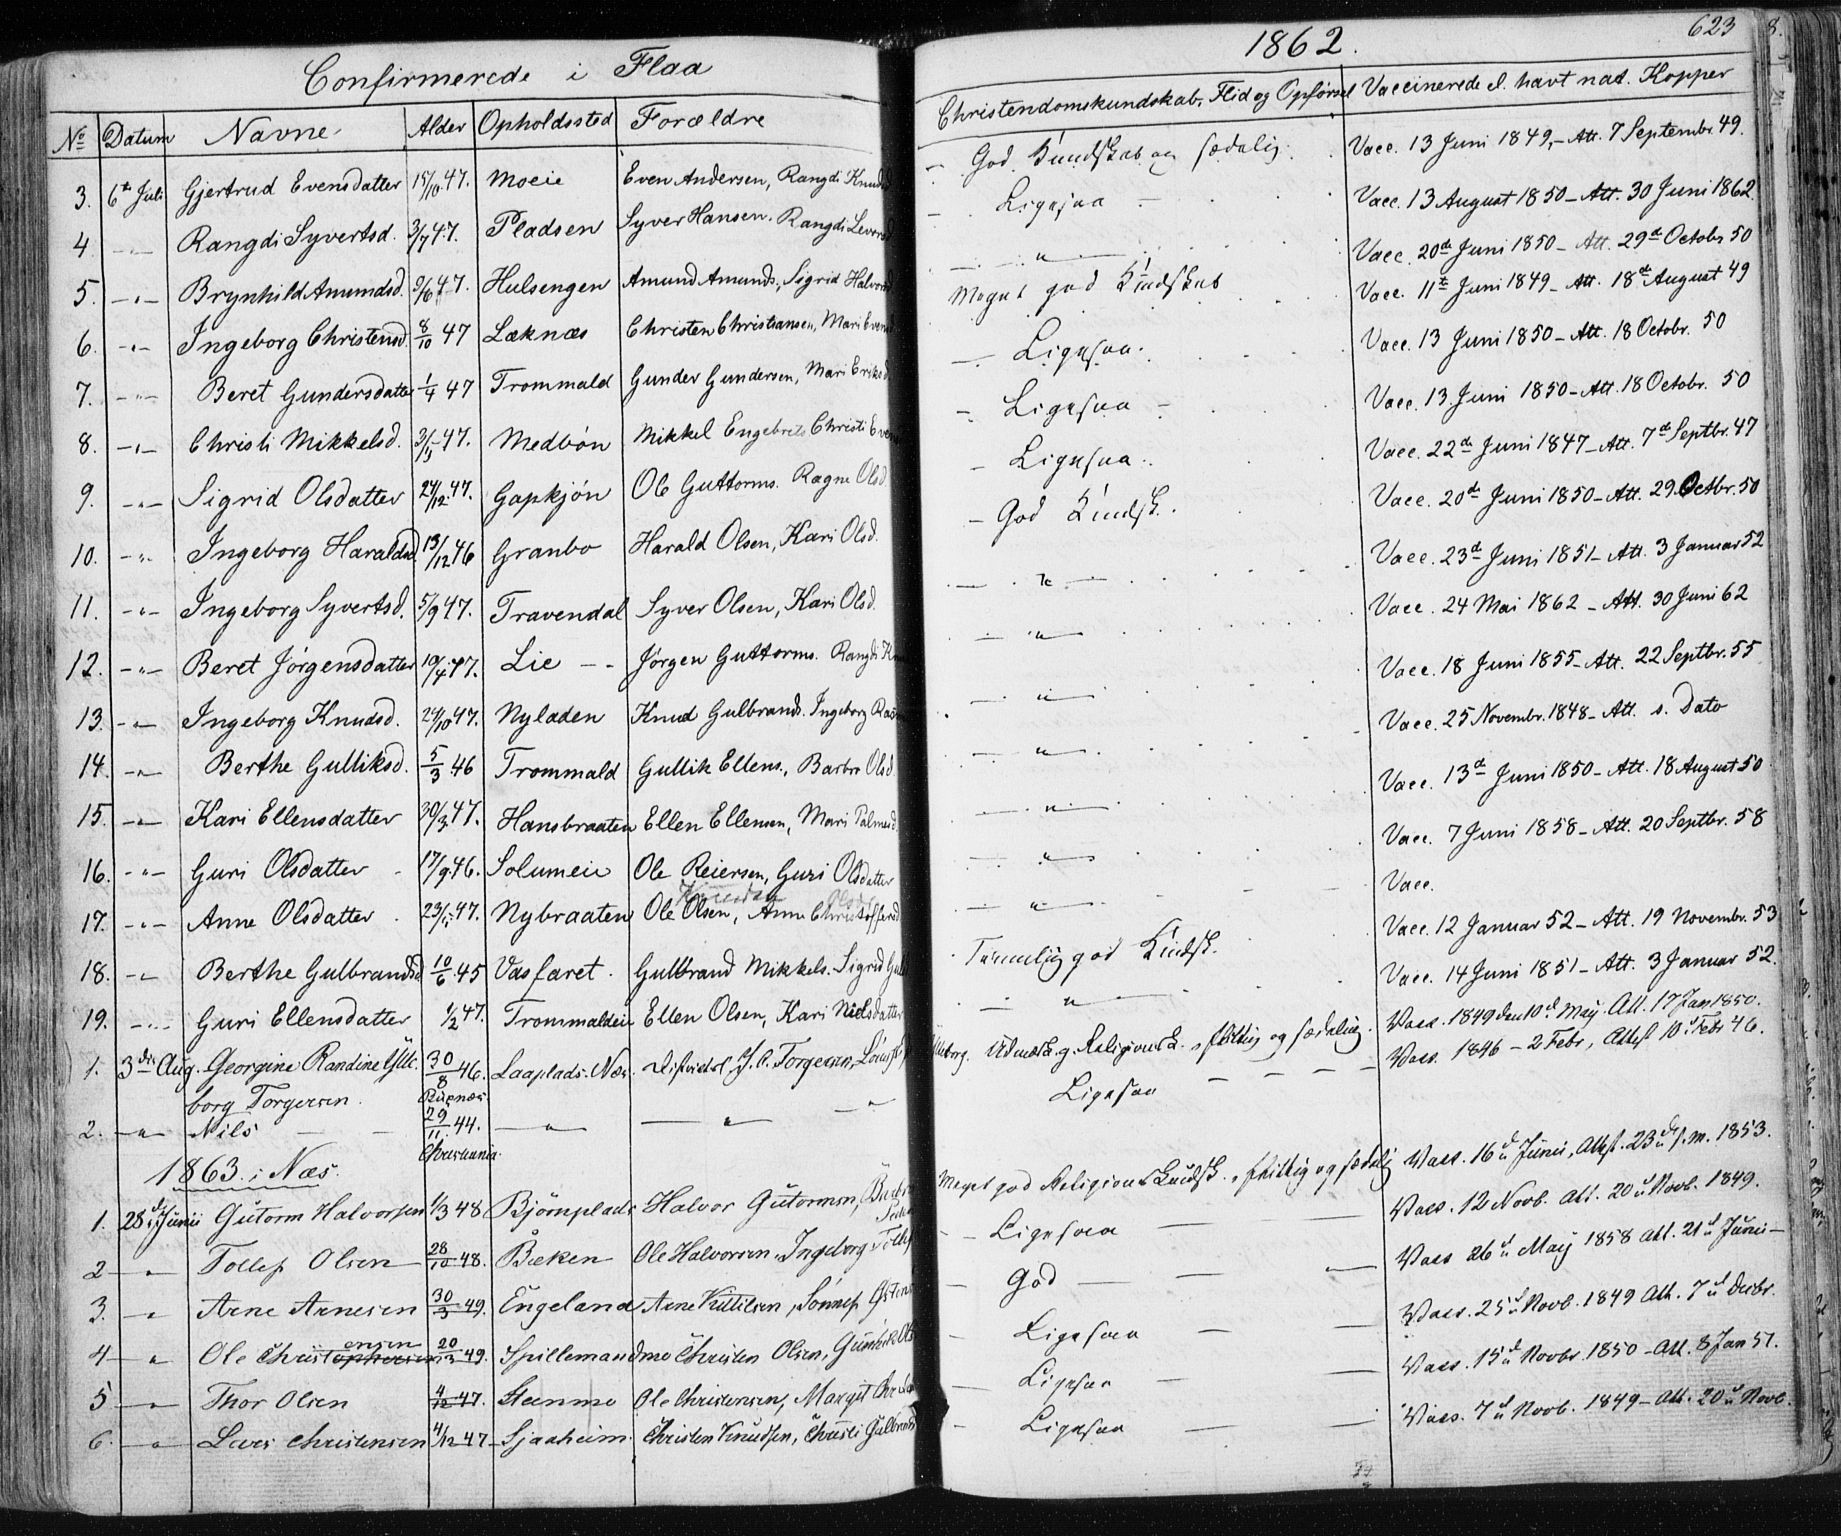 Confirmerede i Flaa
1862.
623
No Datum Navne Alder Opholdssted Forældre Christendomskundskab, Flid og Opførsel Vaccinerede el. havt nat. Kopper
3. 6te Juli Gjertrud Evensdatter 15/10 47. Moeie Even Andersen, Rangdi Knudsd - God Kundskab og sædelig. Vacc. 13 Juni 1849, - Att. 7 Septembr. 49.
4 -"- Rangdi Syvertsd. 3/7 47. Pladsen Syver Hansen. Rangdi Levorsd - Ligesaa - Vacc. 13 August 1850 - Att. 30 Juni 1862.
5. -"- Brynhild Amundsd. 9/6 47. Hulsengen Amund Amunds, Sigrid Halvorsd -"- Vacc. 20de Juni 1850 - Att. 29de Octobr 50
6. -"- Ingeborg Christensd. 8/10 47 Læknæs Christen Christiansen, Mari Evensd Meget god Kundskab Vacc. 11te Juni 1849 - Att. 18de August 49
7. -"- Beret Gundersdatter 1/4 47 Trommald Gunder Gundersen, Mari Eriksd - Ligesaa. Vacc. 13 Juni 1850 - Att. 18 Octobr. 50
8. -"- Christi Mikkelsd. 3/5 47. Medbøn Mikkel Engebrets Christi Evens - Ligesaa - Vacc. 13 Juni 1850 - Att. 18 Octobr. 50
9. -"- Sigrid Olsdatter 24/12 47. Gapkjøn Ole Guttorms. Ragne Olsd - Ligesaa. Vacc. 22de Juni 1847 - Att. 7de Septbr. 47
10. -"- Ingeborg Haraldsd. 13/12 46 Granbo Harald Olsen, Kari Olsd. - God Kundsk. Vacc. 20de Juni 1850 - Att. 29 Octbr. 50
11. -"- Ingeborg Syvertsd. 5/9 47. Travendal Syver Olsen, Kari Olsd. -"- Vacc. 23de Juni 1851 - Att. 3 Januar 52
12. -"- Beret Jørgensdatter 19/4 47. Lie -- Jørgen Guttorms. Rangdi Kn -"- Vacc. 24 Mai 1862 - Att. 30 Juni 62
13. -"- Ingeborg Knudsd. 24/10 47. Nyladen Knud Gulbrands. Ingeborg -"- Vacc. 18 Juni 1855 - Att. 22 Septbr. 55
14. -"- Berthe Gulliksd. 5/3 46 Trommald Gullik Ellens., Barbro Olsd. -"- Vacc. 25 Novembr. 1848 - Att. s. Dato
15. -"- Kari Ellensdatter 30/3 47. Hansbraaten Ellen Ellensen, Mari Palmesd. -"- Vacc. 13de Juni 1850 - Att. 18 August 50
16. -"- Guri Olsdatter 17/9 46. Solumeie Ole Reiersen, Guri Olsdatter -"- Vacc. 7 Juni 1858 - Att. 20 Septbr. 58
Knudsen Olsd
17. -"- Anne Olsdatter 23/5 47. Nybraaten Ole Olsen, Anne Christoffersd -"- Vacc.
18. -"- Berthe Gulbrandsd 10/6 45 Vasfaret. Gulbrand Mikkels. Sigrid Gul Temmelig god Kundsk. Vacc. 12 Januar 52 - Att. 19 Novembr. 53
19. -"- Guri Ellensdatter 1/2 47. Trommaldeie Ellen Olsen, Kari Nielsdatter -"- Vacc. 14 Juni 1851 - Att. 3 Januar 52.
1. 3die Aug. Georgine Randine Ylle 30/8 46. Laaplads. Næs. Districtsl. J. A. Torgersen, Udmærk. g. Religionsk., flittig og sædelig. Vacc. 1849 den 10de May. Att. 17 Jan 1850.
borg Torgersen. Rusnæs
2. -"- Nils 29/11 44. -"- -"- Ligesaa Vacc. 1846 - 2 Febr, Attest 10de Febr 46.
Christiania
1863. i Næs.
1. 28de Junii Gutorm Halvorsen 1/3 48 Bjørnplads Halvor Gutormsen, Meget god Religions Kundsk., flittig og sædelig Vacc. 16de Junii, Attest. 23de s. m. 1853.
2 -"- Tollef Olsen 28/10 48. Bæken Ole Halvorsen, Ingeborg Tollef - Ligesaa Vacc. 12 Novb. Att. 20de Novb. 1849.
3. -"- Arne Arnesen 30/3 49. Engeland Arne Kittilsen, Sønnef Østens - God Vacc 26de May 1858 Att. 21de Junii -
ensen
4 -"- Ole Christophersen 20/3 49. Spillemandmo Christen Olsen, Gunhild Ols - Ligesaa Vacc. 25de Novb. 1849 Att. 7de Decbr.
5 -"- Thor Olsen 4/12 47. Steenmo Ole Christensen, Margit - Ligesaa Vacc. 15de Novbr 1850 - Att. 8 Jan 51.
6. -"- Lars Christensen 4/12 47 Sjaaheim Christen Knudsen, Christi Gulbrands - Ligesaa Vacc. 7de Novb. 1849 - Att. 20de Novb.